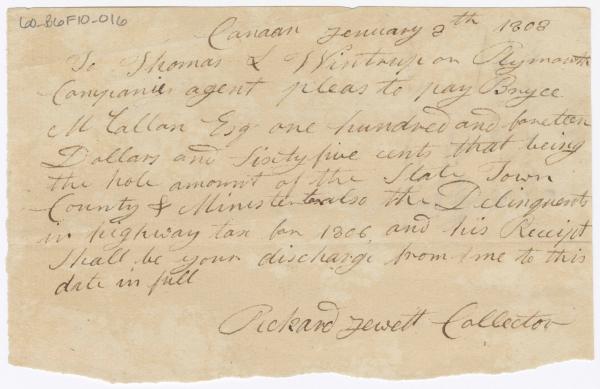 60-B6F10-016
Canaan Jenuary 8th 1808
To Thomas L Wintrup or Plymouth
Companies agent pleas to pay Bryce
McLallan Esq one hundred and
Dollars and Sixty five cents that being
the hole amount of the State Town
County & Minister also the Delinquents
in highway tax for 1806 and his Receipt
Shall be your discharge from me to this
date in full
Pickard Jewett Collector